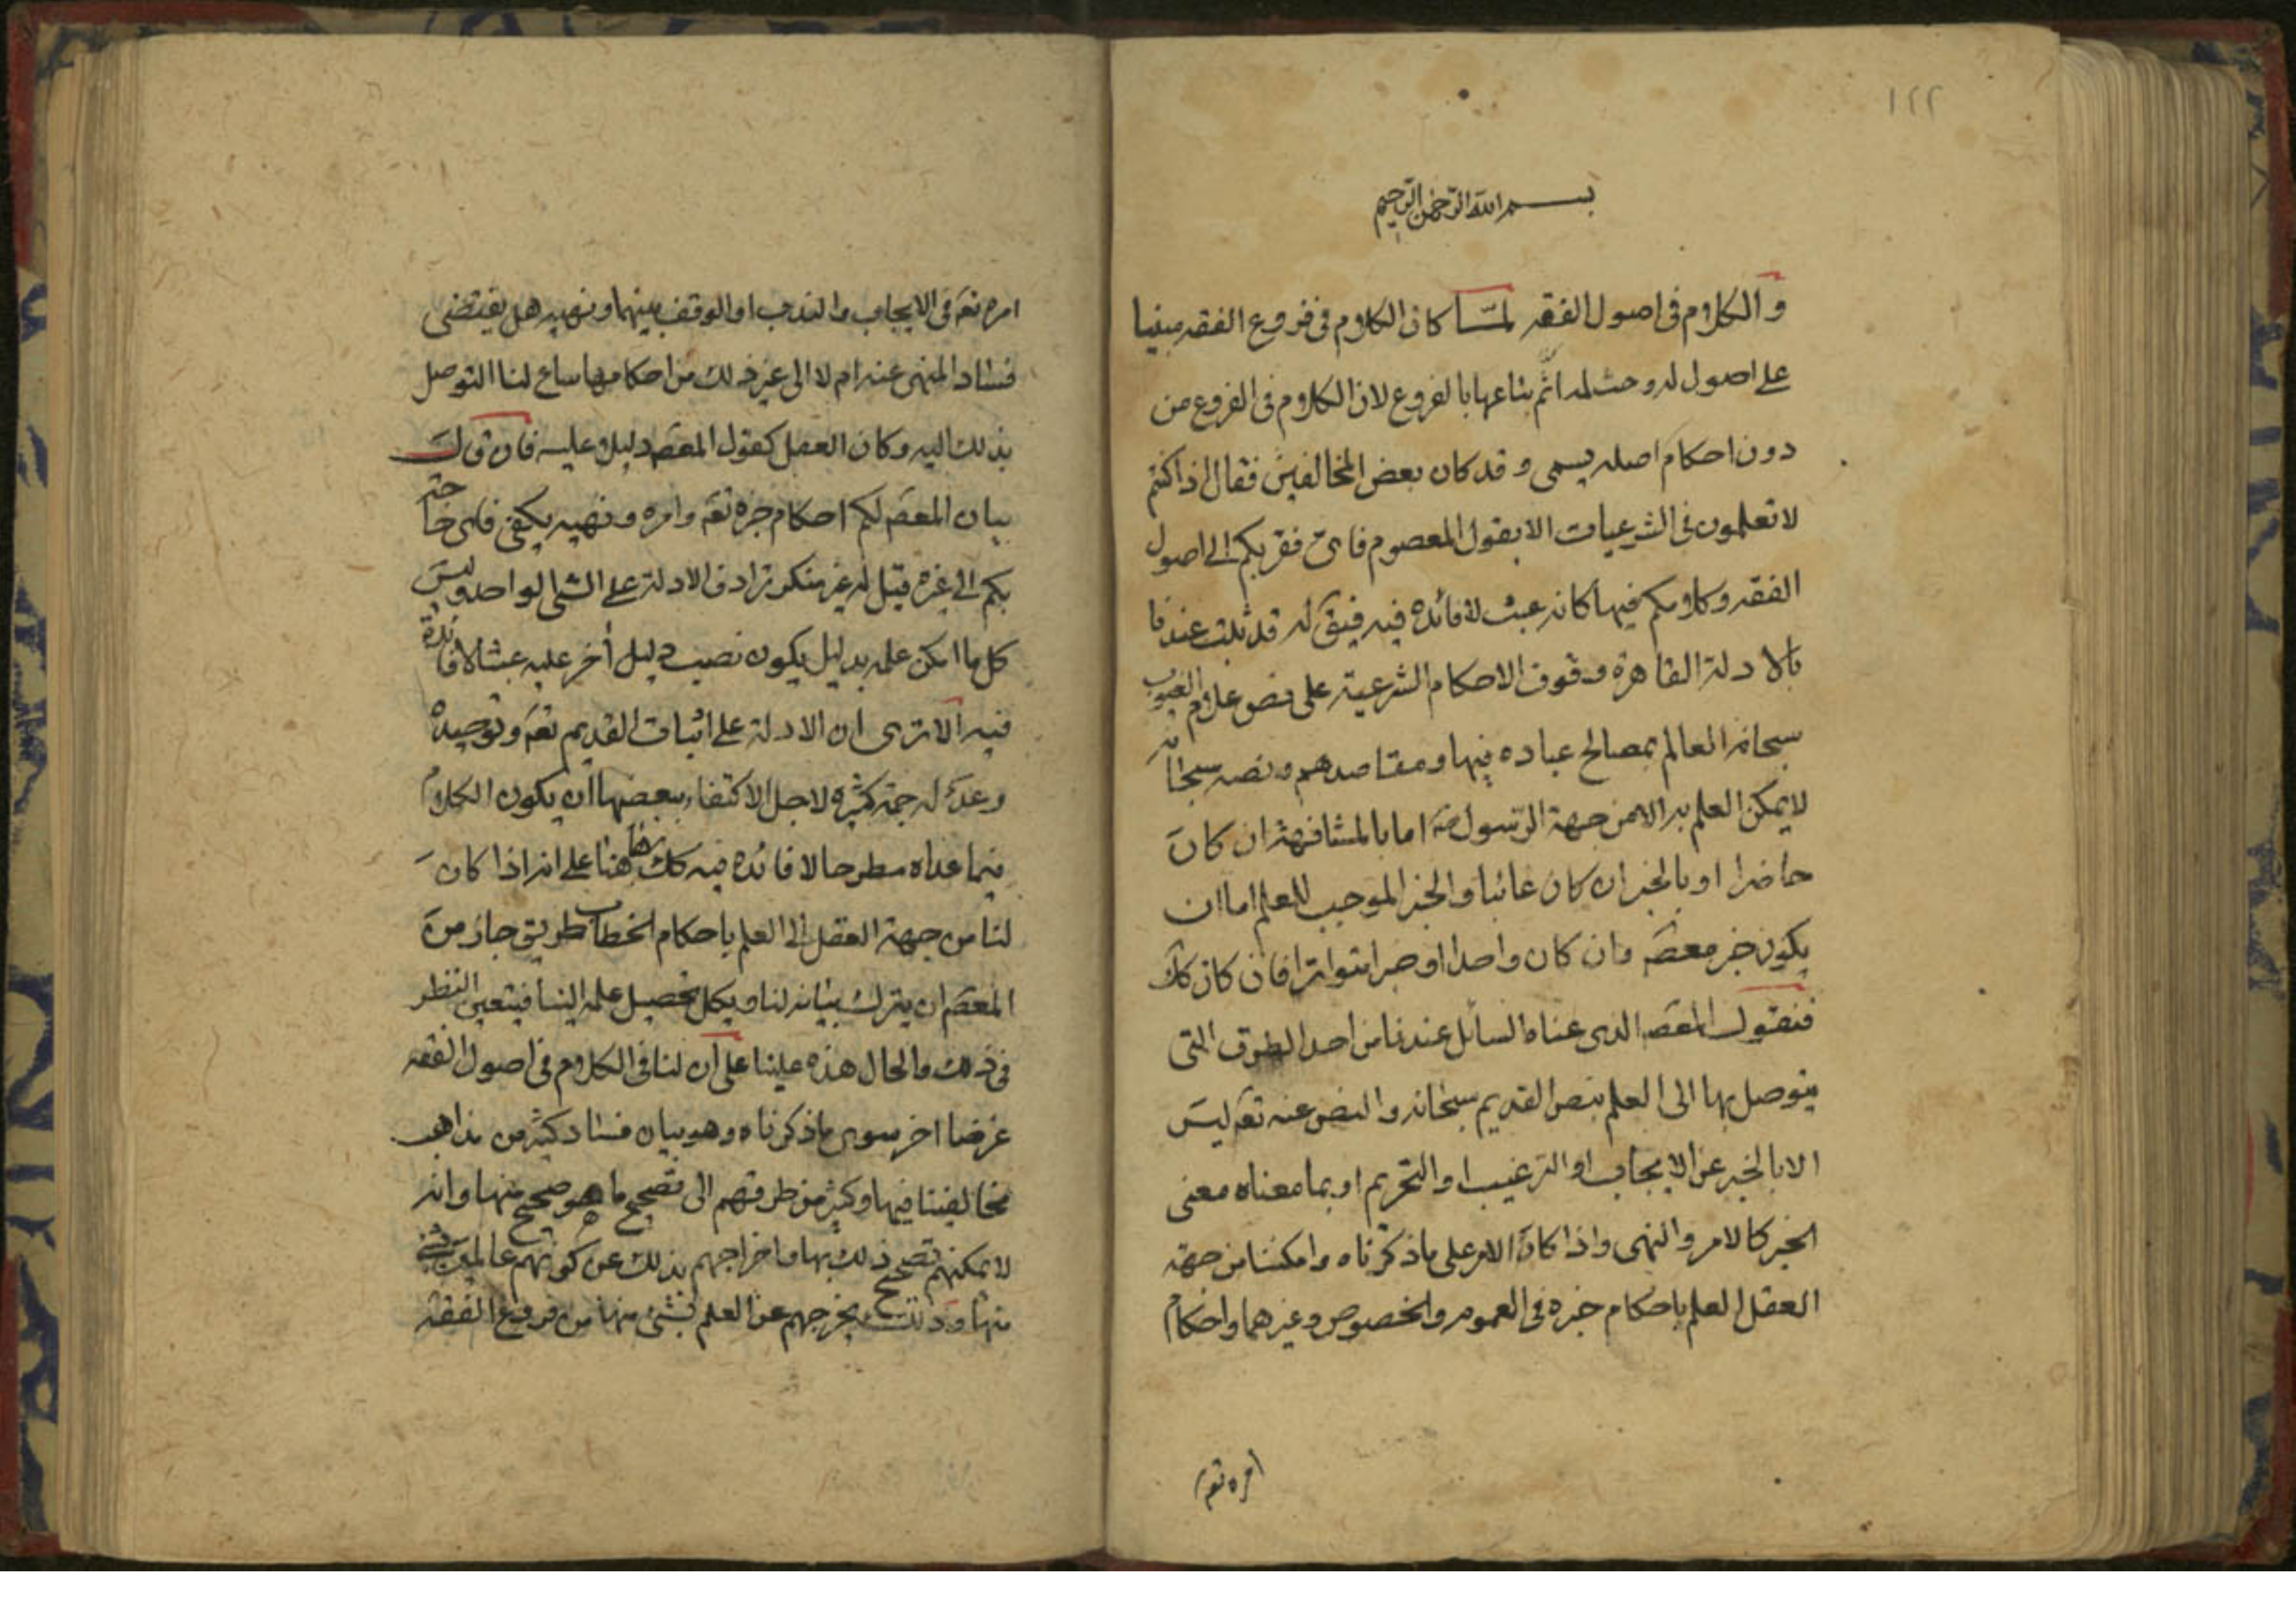 ١٢٢
بسم الله الرحمن الرحيم
والكلام في اصول الفقه لمّا كان الكلام في فروع الفقه مبنيا
على اصول له وجب لمد اثم بناعها بالفروع لان الكلام في الفروع من
دون احكام اصله يسمى و قد كان بعض المخالفين فقال اذا كنتم
لا تعلمون في الشرعيات الا بقول المعصوم فاى فقر بكم الى اصول
الفقه وكلامكم فيها كانه عبث لا فائدة فيه فيق له قد ثبت عندنا
بالادلة القاهرة وقوف الاحكام الشرعية على نص علام الغيوب
سبحانه العالم بمصالح عباده فيها ومقاصدهم ونصه سبحانه
لا يمكن العلم به الا من جهة الرسول صم اما بالمشافهة ان كان
حاضرا او بالخبر ان كان غائبا والخبر الموجب للعلم اما ان
يكون خبر معصم وان كان واحدا او خبرا متواترا فان كان كك
فنقول المعصم الذى عناه السائل عندنا من احد الطرق التى
يتوصل بها الى العلم بنص القديم سبحانه والنص عنه تعم ليس
الا بالخبر عن الايجاب او الترغيب او التحريم او بما معناه معنى
الخبر كالامر والنهى واذا كان الامر على ما ذكرناه وامكننا من جهة
العقل العلم باحكام خبره في العموم والخصوص وغيرهما واحكام
امره تعم
امره تعم في الايجاب والندب او الوقف بينهما ونهيه هل يقتضى
فساد المنهى عنه ام لا الى غير ذلك من احكامها ساغ لنا التوصل
بذلك اليه وكان العقل كقول المعصم دليلا عليه فان قال
بيان المعصم لكم احكام خبره تعم وامره ونهيه يكفى فاى حاجة
بكم الى غيره قيل له غير منكر ترادف الادلة على الشى الواحد وليس
كل ما امكن علمه بدليل يكون نصب دليل أخر عليه عبثا لا فائدة
فيه الا ترى ان الادلة على اثبات القديم تعم وتوحيده
وعدله جمة كثيرة لاجل الاكتفاء ببعضها ان يكون الكلام
فيما عداه مطرحا لا فائدة فيه كك هاهنا على انه اذا كان
لنا من جهة العقل الى العلم باحكام الخطاب طريق جاز من
المعصم ان يترك بيانه لنا ويكل تحصيل علمه الينا فيتعين النظر
في ذلك والحال هذه علينا على ان لنا في الكلام في اصول الفقه
غرضا اخر سوى ما ذكرناه وهو بيان فساد كثير من مذاهب
مخالفينا فيها وكثير من طرقهم الى تصحيح ما هو صحيح منها وانه
لا يمكنهم تصحيح ذلك بها واخراجهم بذلك عن كونهم عالمين بشئ
منها وذلك يخرجهم عن العلم بشئ منها من فروع الفقه